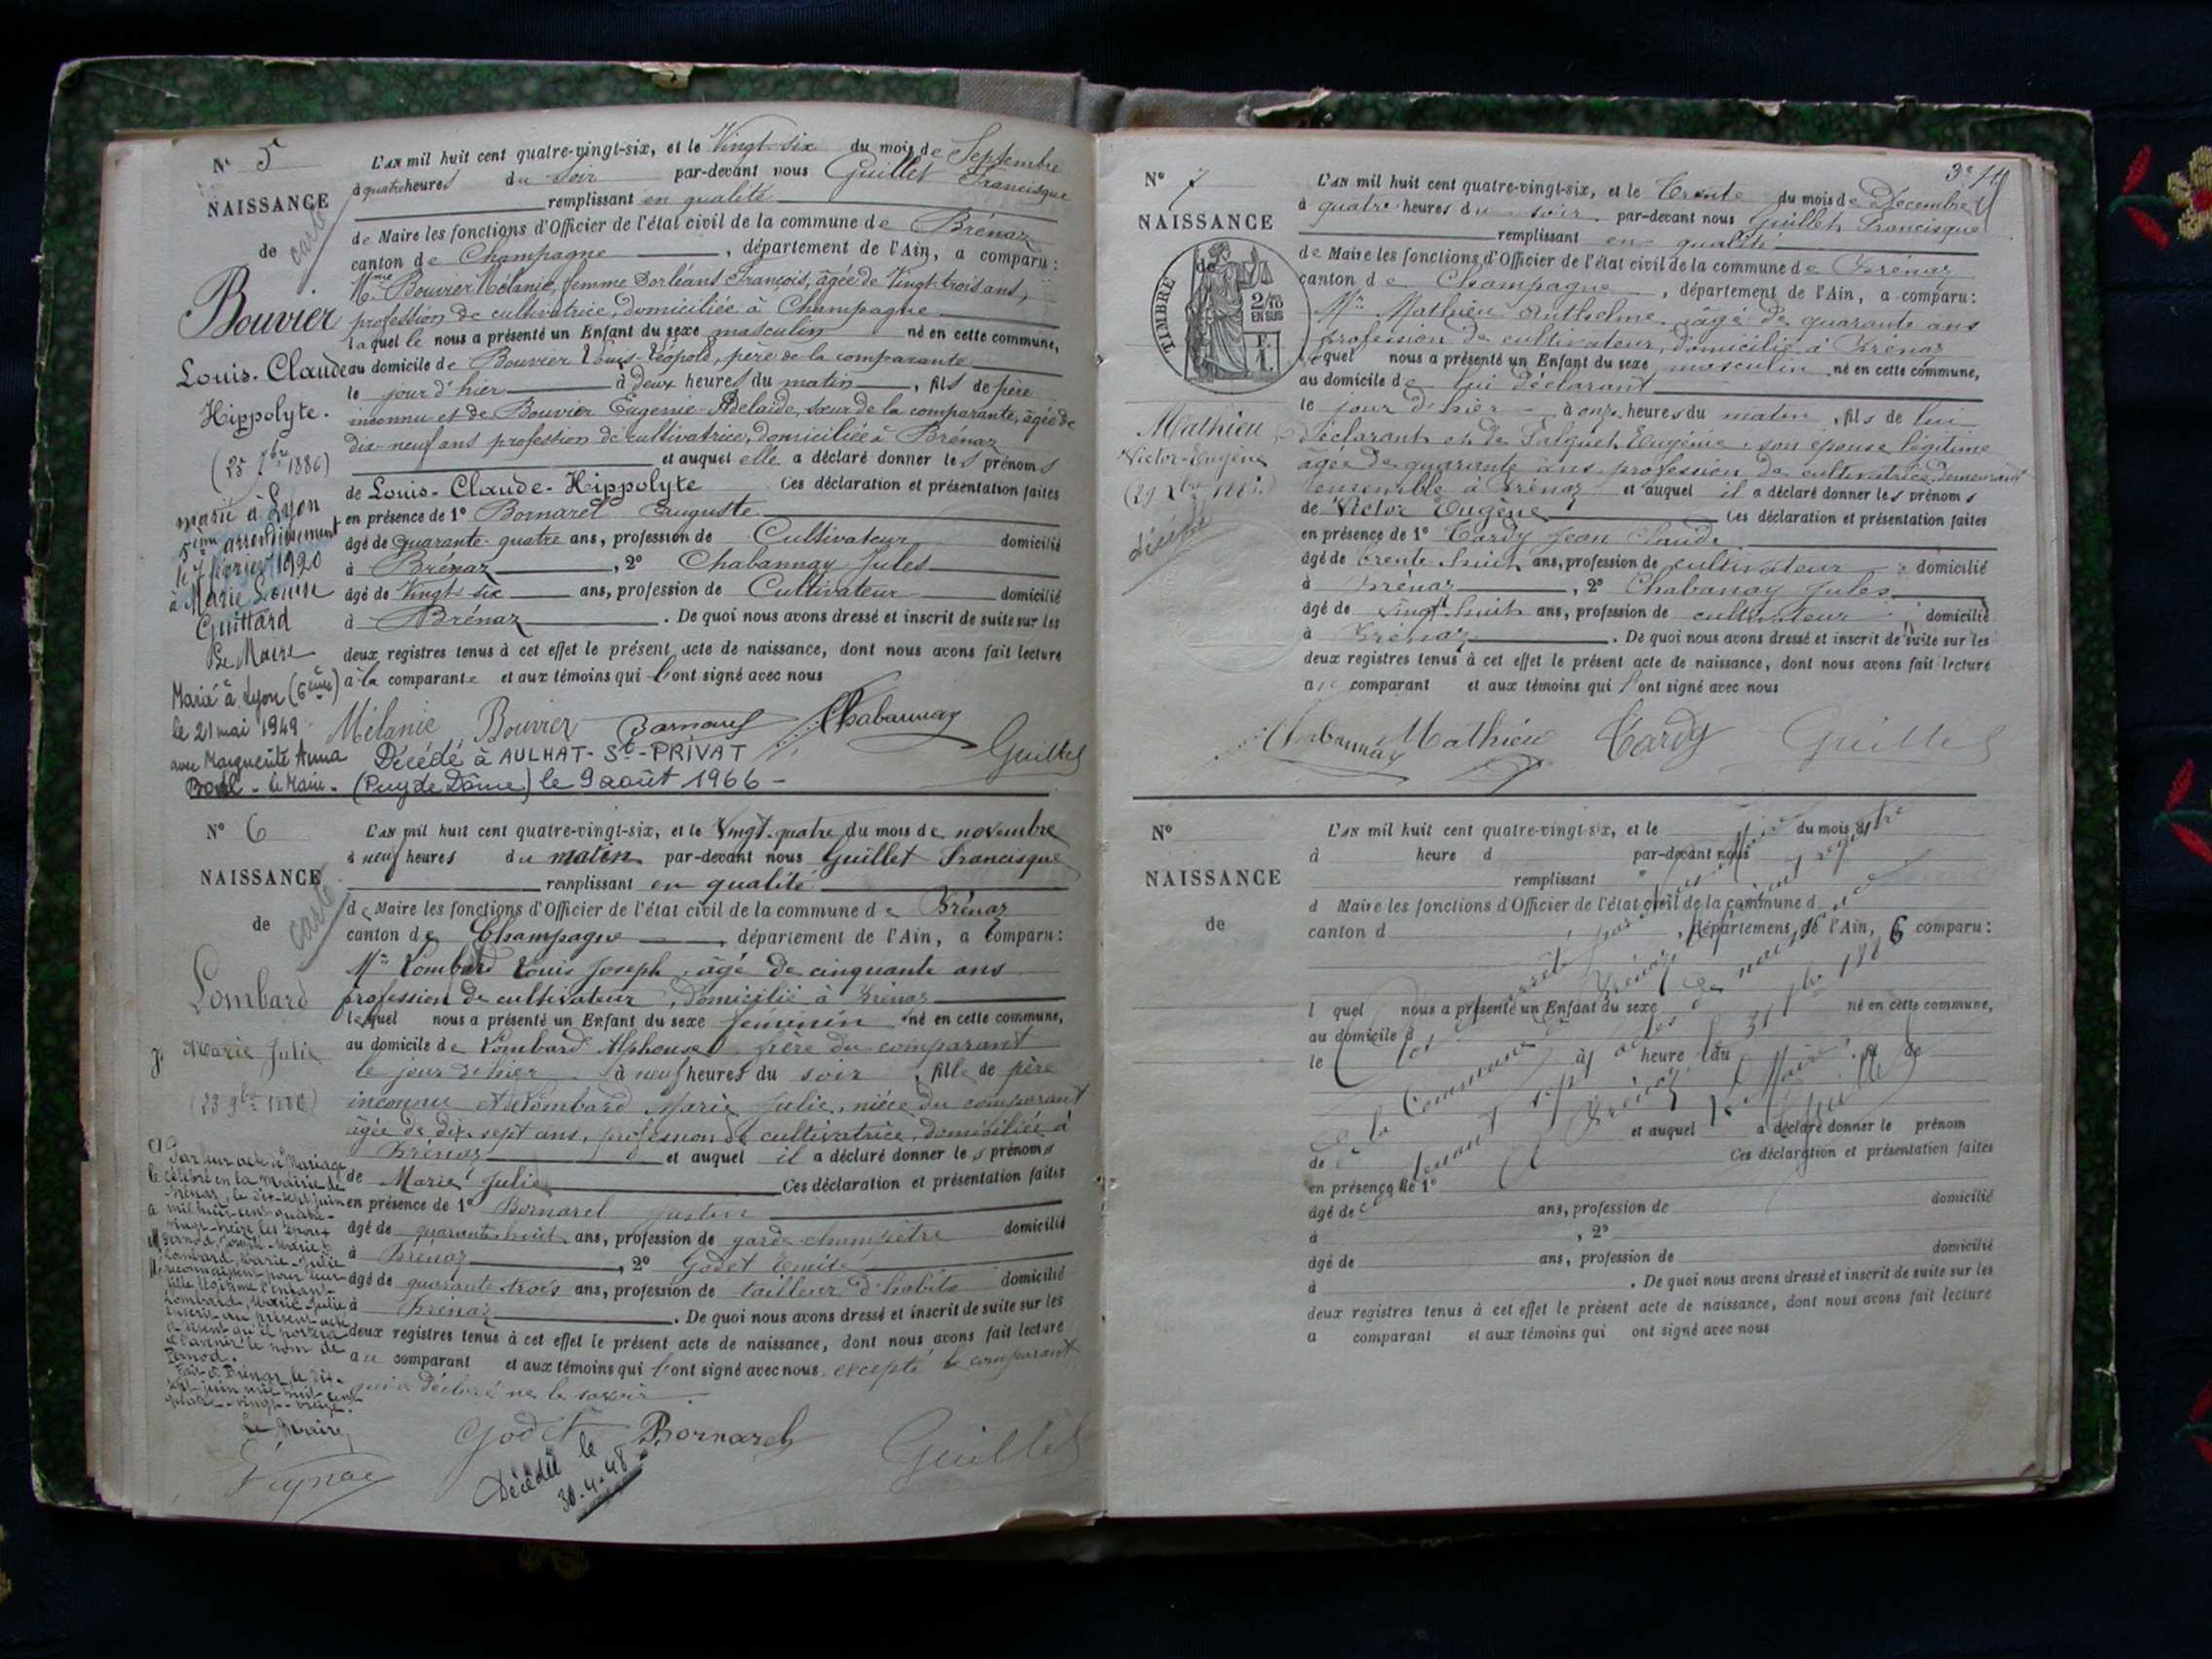 N° 5
NAISSANCE
de
Bouvier
Louis-Claude
Hippolyte.
(25 7bre 1886)
marié à Lyon
5ème arrondissement
le 7 février 1920
à Marie Louise
Guittard
Le Maire
Marié à Lyon (6ème)
le 21 mai 1949
avec Marguerite Anna
le Maire.
L'AN mil huit cent quatre-vingt-six, et le Vingt-six du mois de Septembre
à quatre heures du soir par-devant nous Guillet Francisque
remplissant en qualité
de Maire les fonctions d'Officier de l'état civil de la commune de Brénaz
canton de Champagne, département de l'Ain, a comparu:
Mme Bouvier Mélanie, femme Dorléans François, âgée de Vingt-trois ans,
profession de cultivatrice, domiciliée à Champagne
laquelle nous a présenté un Enfant du sexe masculin né en cette commune,
au domicile de Bouvier Louis-Léopold, père de la comparante
le jour d'hier à deux heures du matin, fils de père
inconnu et de Bouvier Eugénie-Adelaïde, sœur de la comparante, âgée de
dix-neuf ans profession de cultivatrice, domiciliée à Brénaz
et auquel elle a déclaré donner les prénoms
de Louis-Claude-Hippolyte Ces déclaration et présentation faites
en présence de 1° Bornarel Auguste
âgé de quarante-quatre ans, profession de Cultivateur domicilié
à Brénaz, 2° Chabannay Jules
âgé de Vingt-six ans, profession de Cultivateur domicilié
à Brénaz. De quoi nous avons dressé et inscrit de suite sur les
deux registres tenus à cet effet le présent acte de naissance, dont nous avons fait lecture
à la comparante et aux témoins qui l'ont signé avec nous
Mélanie Bouvier Bornarel Chabannay
Guillet
Décédé à AULHAT-St-PRIVAT
(Puy de Dôme) le 9 août 1966 -
N° 6
NAISSANCE
de
Lombard
Marie Julie
(23 9bre 1886)
Par leur acte de Mariage
célébré en la Mairie de
Brénaz, le dix-sept juin
mil huit-cent-quatre-
vingt-treize les époux
Pernod, Joseph-Marie &
Lombard, Marie-Julie
reconnaissent pour leur
fille légitime l'enfant
Lombard, Marie-Julie
inscrit au présent acte
qu'il portera
à l'avenir le nom de
Pernod.
Fait à Brénaz, le dix-
sept juin mil huit cent
quatre-vingt-treize.
Le Maire,
L'AN mil huit cent quatre-vingt-six, et le Vingt-quatre du mois de novembre
à neuf heures du matin par-devant nous Guillet Francisque
remplissant en qualité
de Maire les fonctions d'Officier de l'état civil de la commune de Brénaz
canton de Champagne, département de l'Ain, a comparu:
Mr Lombard Louis Joseph, âgé de cinquante ans
profession de cultivateur, domicilié à Brénaz
lequel nous a présenté un Enfant du sexe féminin né en cette commune,
au domicile de Lombard Alphonse, frère du comparant
le jour d'hier à neuf heures du soir, fille de père
inconnu et de Lombard Marie Julie, nièce du comparant
âgée de dix-sept ans, profession de cultivatrice, domiciliée à
Brénaz et auquel il a déclaré donner les prénoms
de Marie Julie Ces déclaration et présentation faites
en présence de 1° Bornarel Justin
âgé de quarante-huit ans, profession de garde-champêtre domicilié
à Brénaz, 2° Godet Emile
âgé de quarante-trois ans, profession de tailleur d'habits domicilié
à Brénaz. De quoi nous avons dressé et inscrit de suite sur les
deux registres tenus à cet effet le présent acte de naissance, dont nous avons fait lecture
au comparant et aux témoins qui l'ont signé avec nous excepté le comparant
qui a déclaré ne le savoir
Godet Bornarel Guillet
Décédée le
30.4.48
3e
N° 7
NAISSANCE
de
TIMBRE
2/10
EN SUS
Mathieu
Victor-Eugène
décédé
L'AN mil huit cent quatre-vingt-six, et le trente du mois de Décembre
à quatre heures du soir par-devant nous Guillet Francisque
remplissant en qualité
de Maire les fonctions d'Officier de l'état civil de la commune de Brénaz
canton de Champagne, département de l'Ain, a comparu:
Mr Mathieu Anthelme, âgé de quarante ans
profession de cultivateur, domicilié à Brénaz
lequel nous a présenté un Enfant du sexe masculin né en cette commune,
au domicile de lui déclarant
le jour d'hier à onze heures du matin, fils de lui
déclarant et de Falquet Eugénie, son épouse légitime
âgée de quarante ans profession de cultivatrice demeurant
ensemble à Brénaz et auquel il a déclaré donner les prénoms
de Victor Eugène Ces déclaration et présentation faites
en présence de 1° Tardy Jean Claude
âgé de trente-huit ans, profession de cultivateur domicilié
à Brénaz, 2° Chabanay Jules
âgé de vingt-huit ans, profession de cultivateur domicilié
à Brénaz. De quoi nous avons dressé et inscrit de suite sur les
deux registres tenus à cet effet le présent acte de naissance, dont nous avons fait lecture
au comparant et aux témoins qui l'ont signé avec nous
Chabannay Mathieu Tardy Guillet
N°
NAISSANCE
de
L'AN mil huit cent quatre-vingt-six, et le du mois d
à heure d par-devant nous
remplissant
d Maire les fonctions d'Officier de l'état civil de la commune d
canton d, département de l'Ain, a comparu:
l quel nous a présenté un Enfant du sexe né en cette commune,
au domicile d
le à heure du
et auquel a déclaré donner le prénom
de Ces déclaration et présentation faites
en présence de 1°
âgé de ans, profession de domicilié
à, 2°
âgé de ans, profession de domicilié
à. De quoi nous avons dressé et inscrit de suite sur les
deux registres tenus à cet effet le présent acte de naissance, dont nous avons fait lecture
a comparant et aux témoins qui ont signé avec nous
Clos et arrêté par nous Maire
de la Commune de Brénaz le présent registre
contenant sept actes de naissance
à Brénaz le 31 Xbre 1886
Le Maire
Guillet